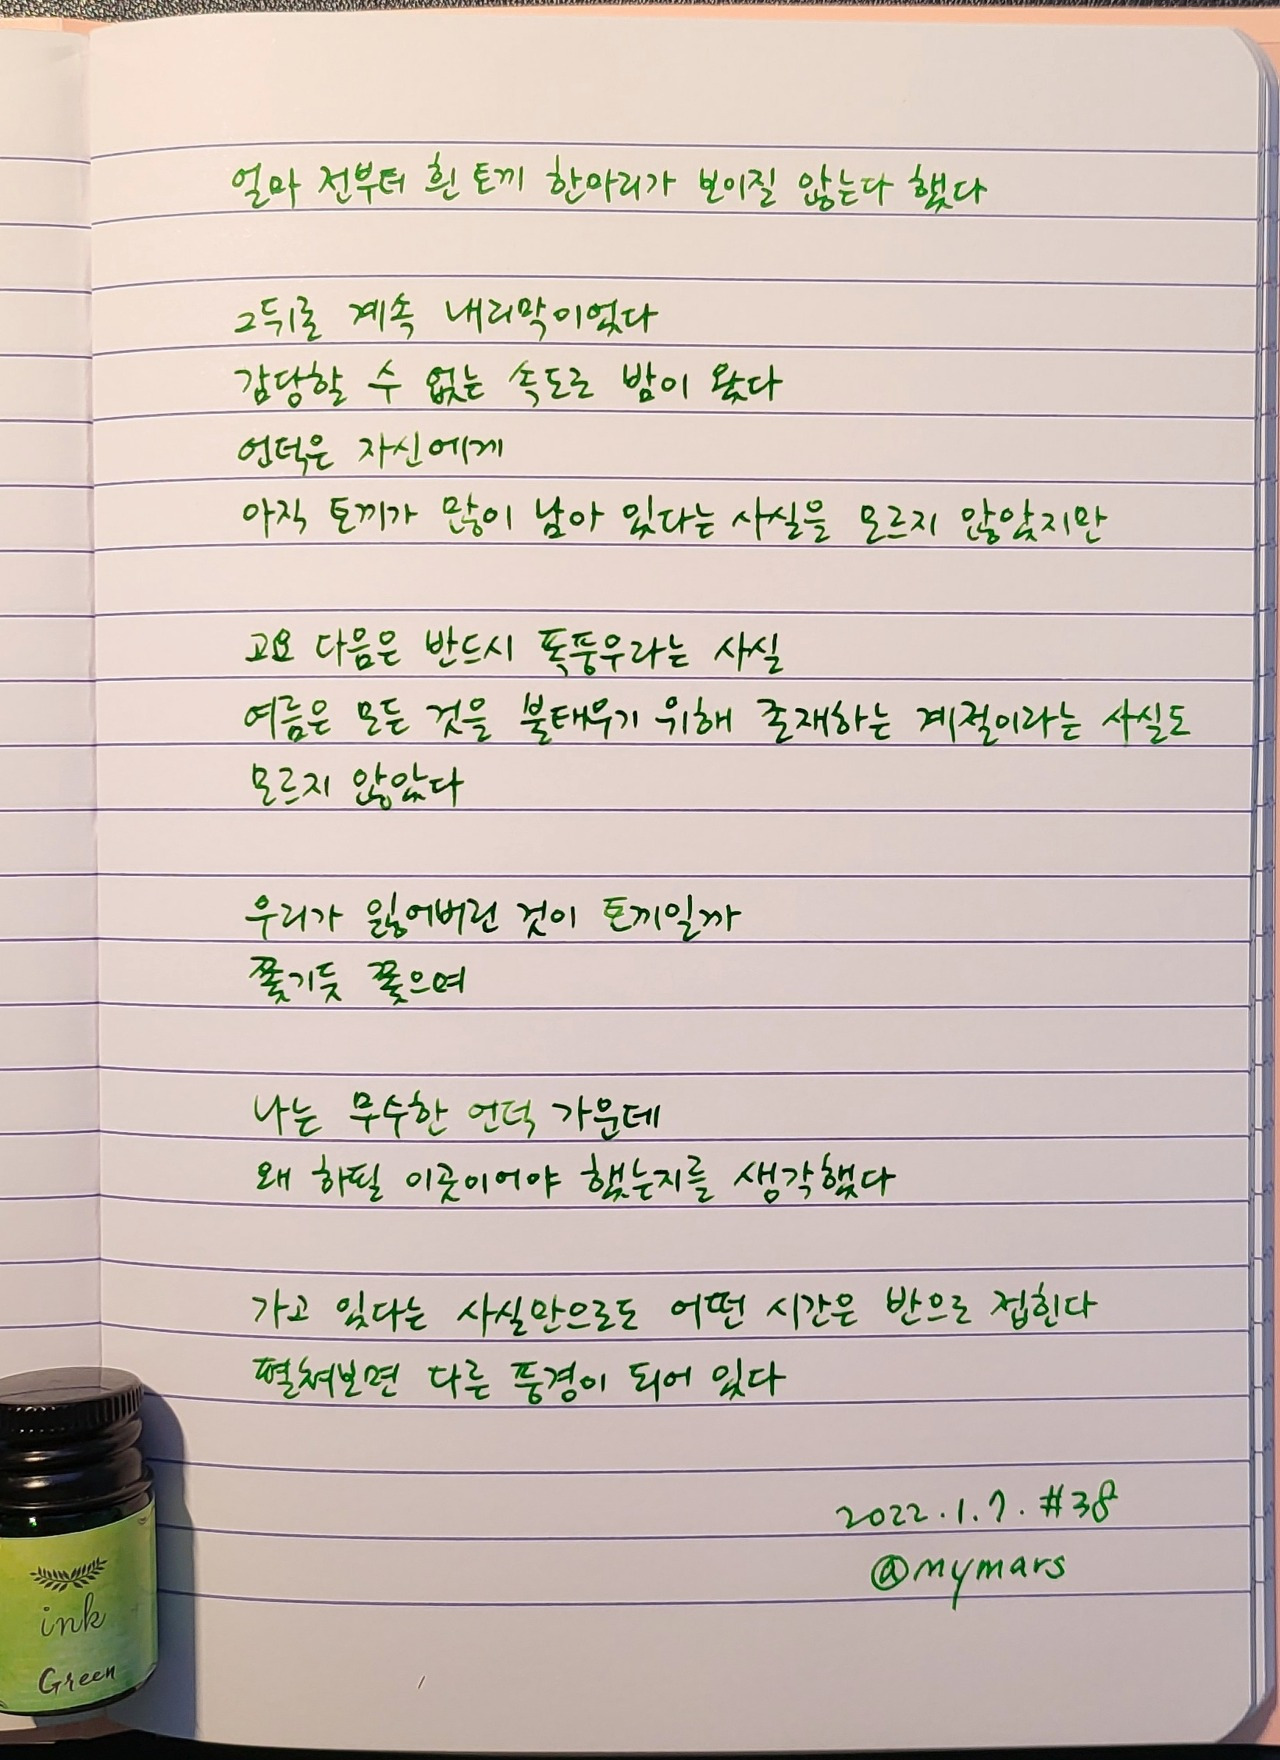 얼마 전부터 흰 토끼 한마리가 보이질 않는다 했다
그뒤로 계속 내리막이었다
감당할 수 없는 속도로 밤이 왔다
언덕은 자신에게
아직 토끼가 많이 남아 있다는 사실을 모르지 않았지만
고요 다음은 반드시 폭풍우라는 사실
여름은 모든 것을 불태우기 위해 존재하는 계절이라는 사실도
모르지 않았다
우리가 잃어버린 것이 토끼일까
쫓기듯 쫓으며
나는 무수한 언덕 가운데
왜 하필 이곳이어야 했는지를 생각했다
가고 있다는 사실만으로도 어떤 시간은 반으로 접힌다
펼쳐보면 다른 풍경이 되어 있다
2022.1.7. #38
@mymars
ink
Green